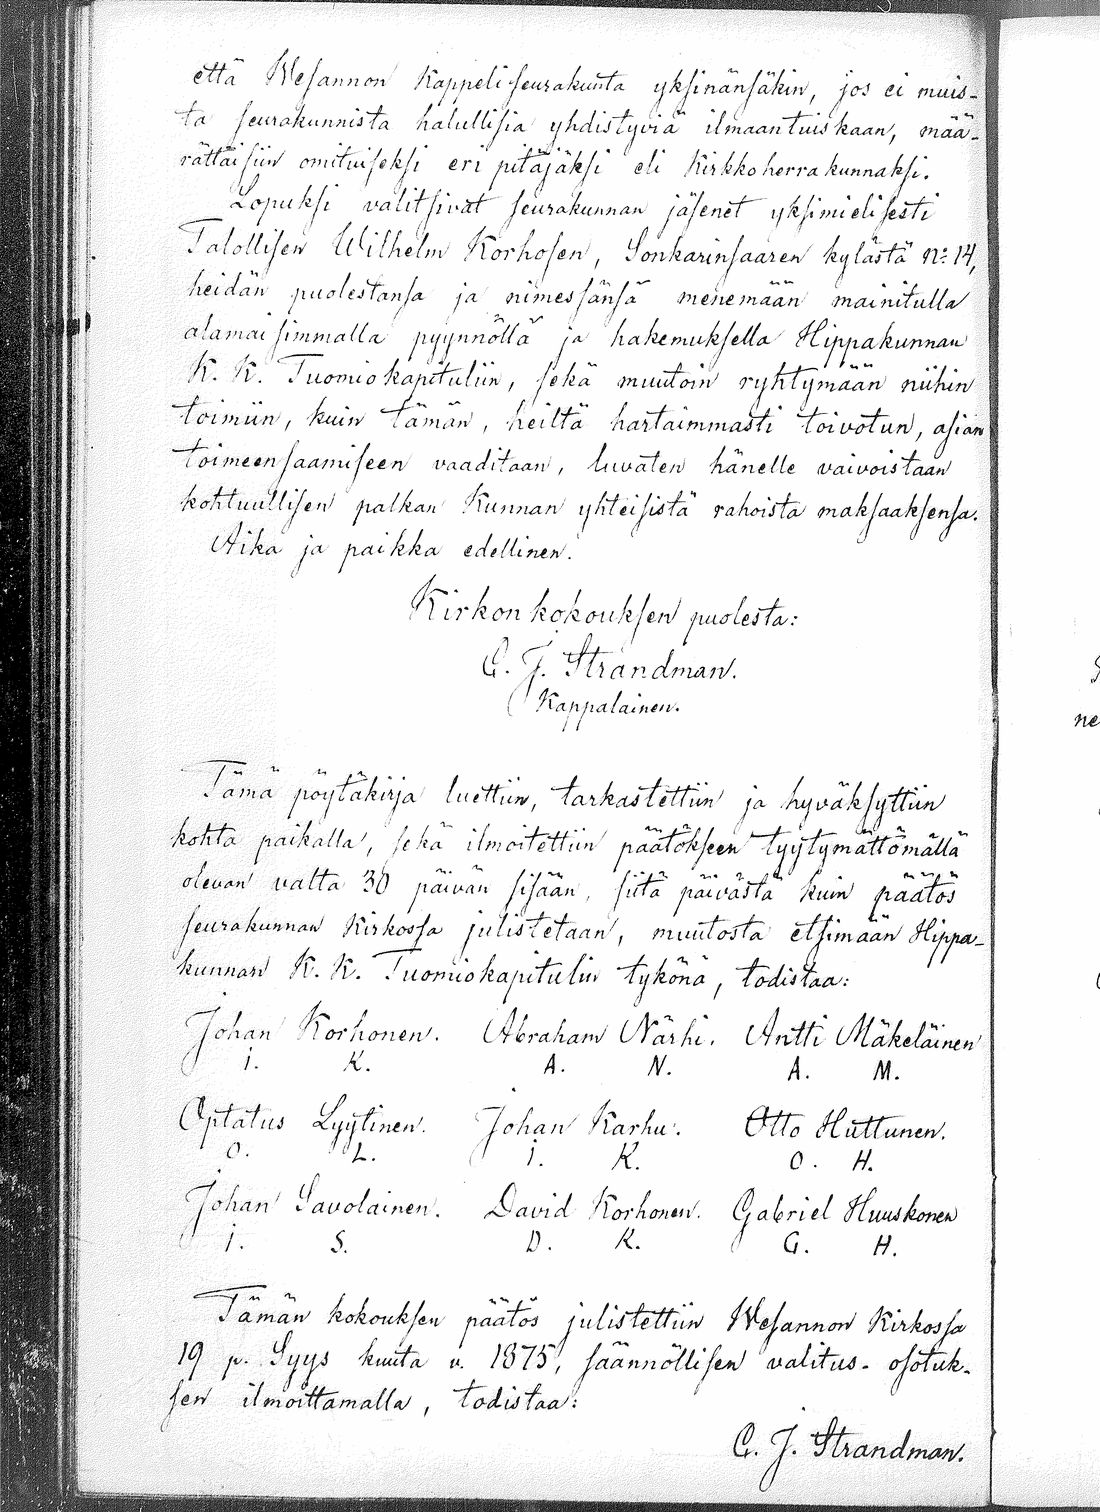 että Wesannon Kappeliseurakunta yksinänsäkin, jos ei muis-
ta seurakunnista halullisia yhdistyviä ilmaantuiskaan, mää-
rättäisiin omituiseksi eri pitäjäksi eli Kirkkoherrakunnaksi.
Lopuksi valitsivat seurakunnan jäsenet yksimielisesti
Talollisen Wilhelm Korhosen, Sonkarinsaaren kylästä No 14,
heidän puolestansa ja nimessänsä menemään mainitulla
alamaisimmalla pyynnöllä ja hakemuksella Hippakunnan
K. K. Tuomiokapituliin, sekä muutoin ryhtymään niihin
toimiin, kuin tämän, heiltä hartaimmasti toivotun, asian
toimeensaamiseen vaaditaan, luvaten hänelle vaivoistaan
kohtuullisen palkan Kunnan yhteisistä rahoista maksaaksensa.
Aika ja paikka edellinen.
Kirkonkokouksen puolesta:
C. J. Strandman.
Kappalainen.
Tämä pöytäkirja luettiin, tarkastettiin ja hyväksyttiin
kohta paikalla, sekä ilmoitettiin päätökseen tyytymättömällä
olevan valta 30 päivän sisään, siitä päivästä kuin päätös
seurakunnan Kirkossa julistetaan, muutosta etsimään Hippa-
kunnan K. K. Tuomiokapitulin tykönä, todistaa:
Johan Korhonen. Abraham Närhi. Antti Mäkeläinen
I. K. A. N. A. M.
Optatus Lyytinen. Johan Karhu. Otto Huttunen.
O. L. I. K. O. H.
Johan Savolainen. David Korhonen. Gabriel Huuskonen
I. S. D. K. G. H.
Tämän kokouksen päätös julistettiin Wesannon Kirkossa
19 p. Syys kuuta v. 1875, säännöllisen valitus-osotuk-
sen ilmoittamalla, todistaa:
C. J. Strandman.
ne